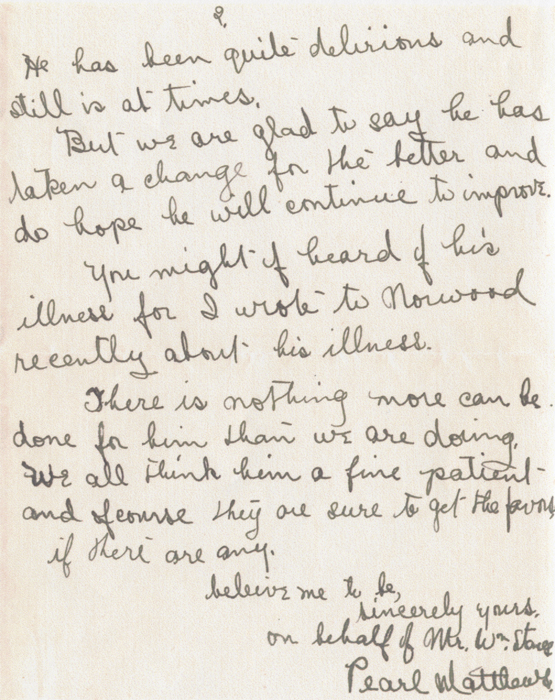 2.
He has been quite delirious and
still is at times.
But we are glad to say he has
taken a change for the better and
do hope he will continue to improve.
You might of heard of his
illness for I wrote to Norwood
recently about his illness.
There is nothing more can be
done for him than we are doing.
We all think him a fine patient
and ofcourse they are sure to get the favors
if there are any.
beleive me to be,
sincerely yours,
on behalf of Mr. Wm.
Pearl Matthews